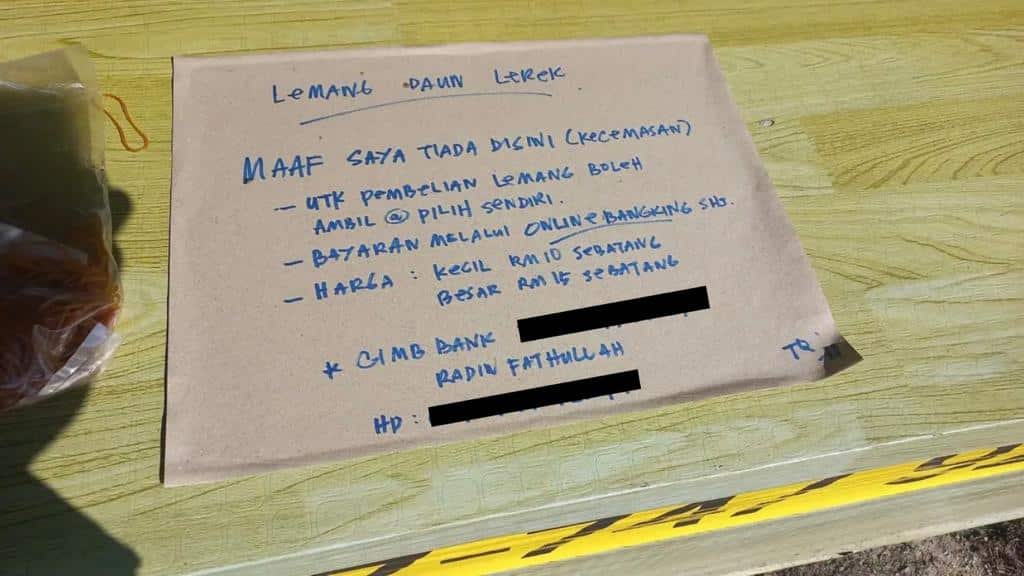 LEMANG DAUN LEREK
MAAF SAYA TIADA DISINI (KECEMASAN)
- UTK PEMBELIAN LEMANG BOLEH
AMBIL @ PILIH SENDIRI.
- BAYARAN MELALUI ONLINE BANGKING SHJ.
- HARGA : KECIL RM10 SEBATANG
BESAR RM15 SEBATANG
* CIMB BANK
RADIN FATHULLAH
HP :
TQ